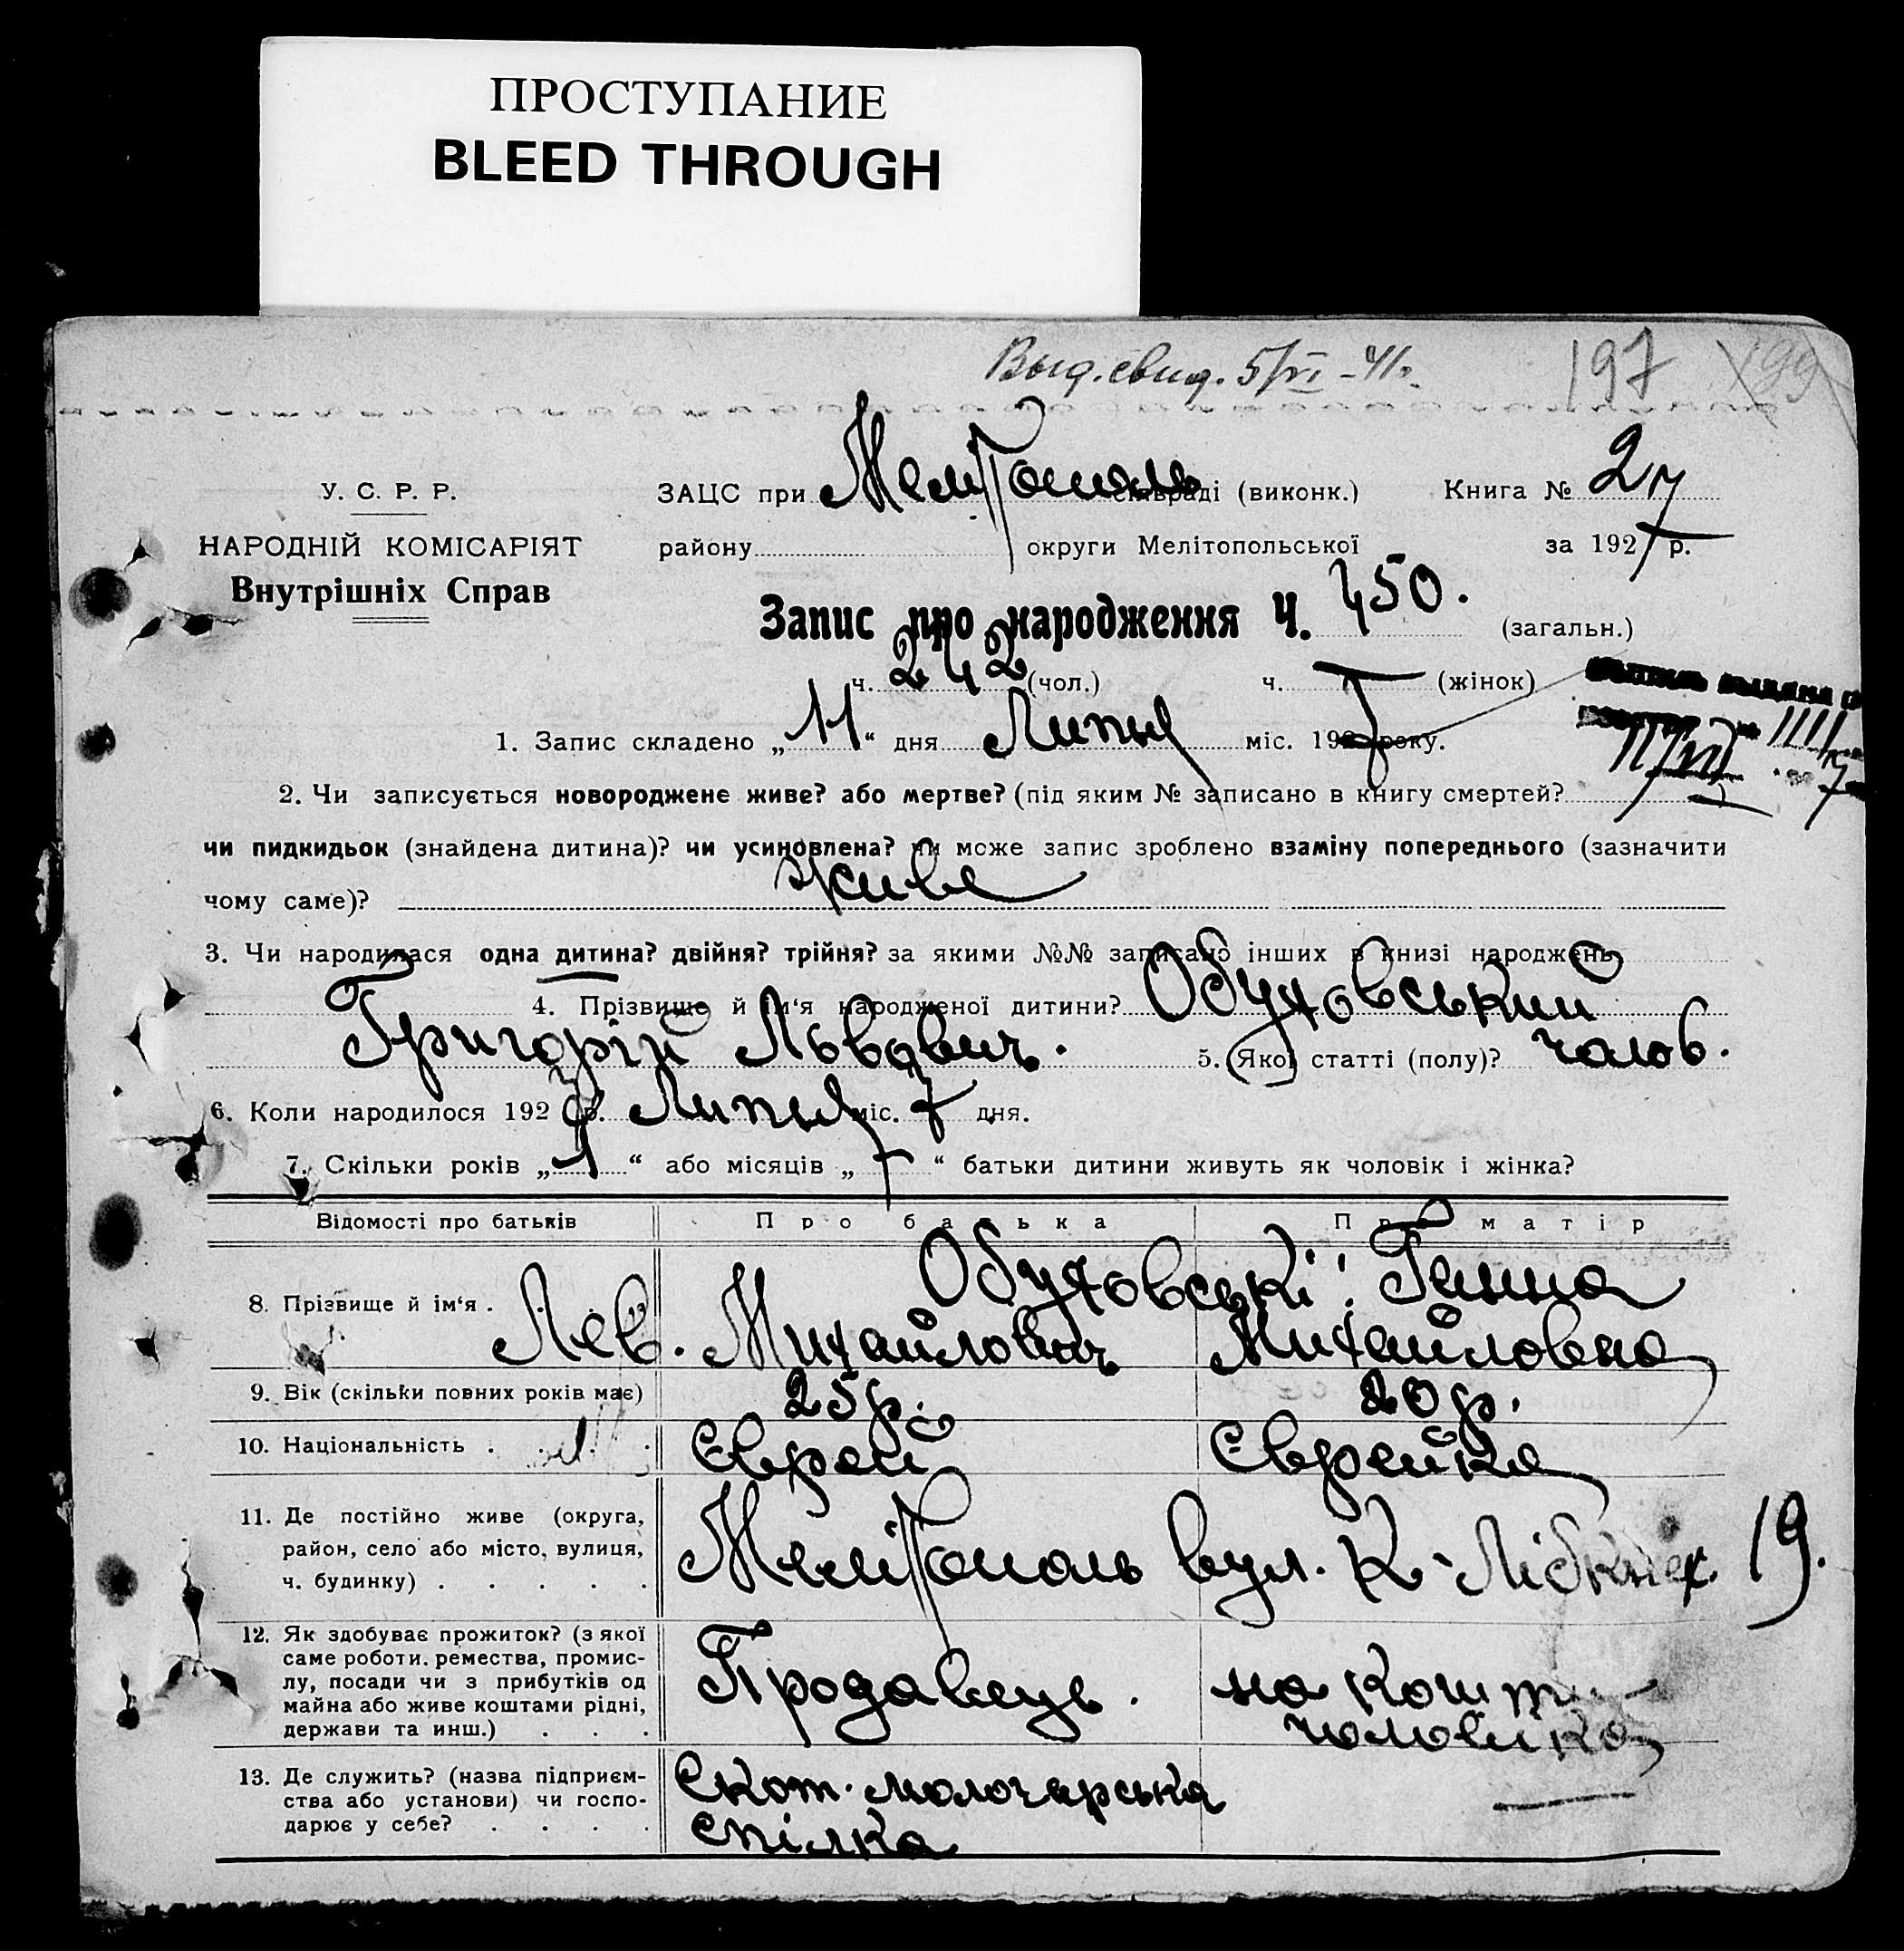 ПРОСТУПАНИЕ
BLEED THROUGH
Выд. свид. 5/VI-41г.
197 199
У. С. Р. Р.
НАРОДНІЙ КОМІСАРІЯТ
Внутрішніх Справ
ЗАЦС при Мелітополь сільраді (виконк.) Книга № 2
району округи Мелітопольської за 1927 р.
Запис про народження Ч. 450. (загальн.)
ч. 242 (чол.) ч. (жінок)
1. Запис складено „11“ дня Липня міс. 1927 року.
11/VII
2. Чи записується новороджене живе? або мертве? (під яким № записано в книгу смертей?
чи пидкидьок (знайдена дитина)? чи усиновлена? чи може запис зроблено взаміну попереднього (зазначити
чому саме)? живе
3. Чи народилася одна дитина? двійня? трійня? за якими №№ записано інших в книзі народжень
4. Прізвище й ім‘я народженої дитини? Обуховський
Григорій Львович. 5. Якої статті (полу)? чолов.
6. Коли народилося 1927 р. Липня міс. 7 дня.
7. Скільки років „1“ або місяців „-“ батьки дитини живуть як чоловік і жінка?
Відомості про батьків Про батька Про матір
8. Прізвище й ім‘я. Обуховські: Ганна
Лев. Михайлович Михайловна
9. Вік (скільки повних років має) 25 р. 20 р.
10. Національність . . . . Єврей Єврейка
11. Де постійно живе (округа,
район, село або місто, вулиця,
ч. будинку) . . . . .
Мелітополь вул. К-Лібкнех. 19.
12. Як здобуває прожиток? (з якої
саме роботи. ремества, промис-
лу, посади чи з прибутків од
майна або живе коштами рідні,
держави та инш.) . . .
Продавець. на кошти
чоловіка
13. Де служить? (назва підприєм-
ства або установи) чи госпо-
дарює у себе? . . . .
Скот. молочарська
спілка